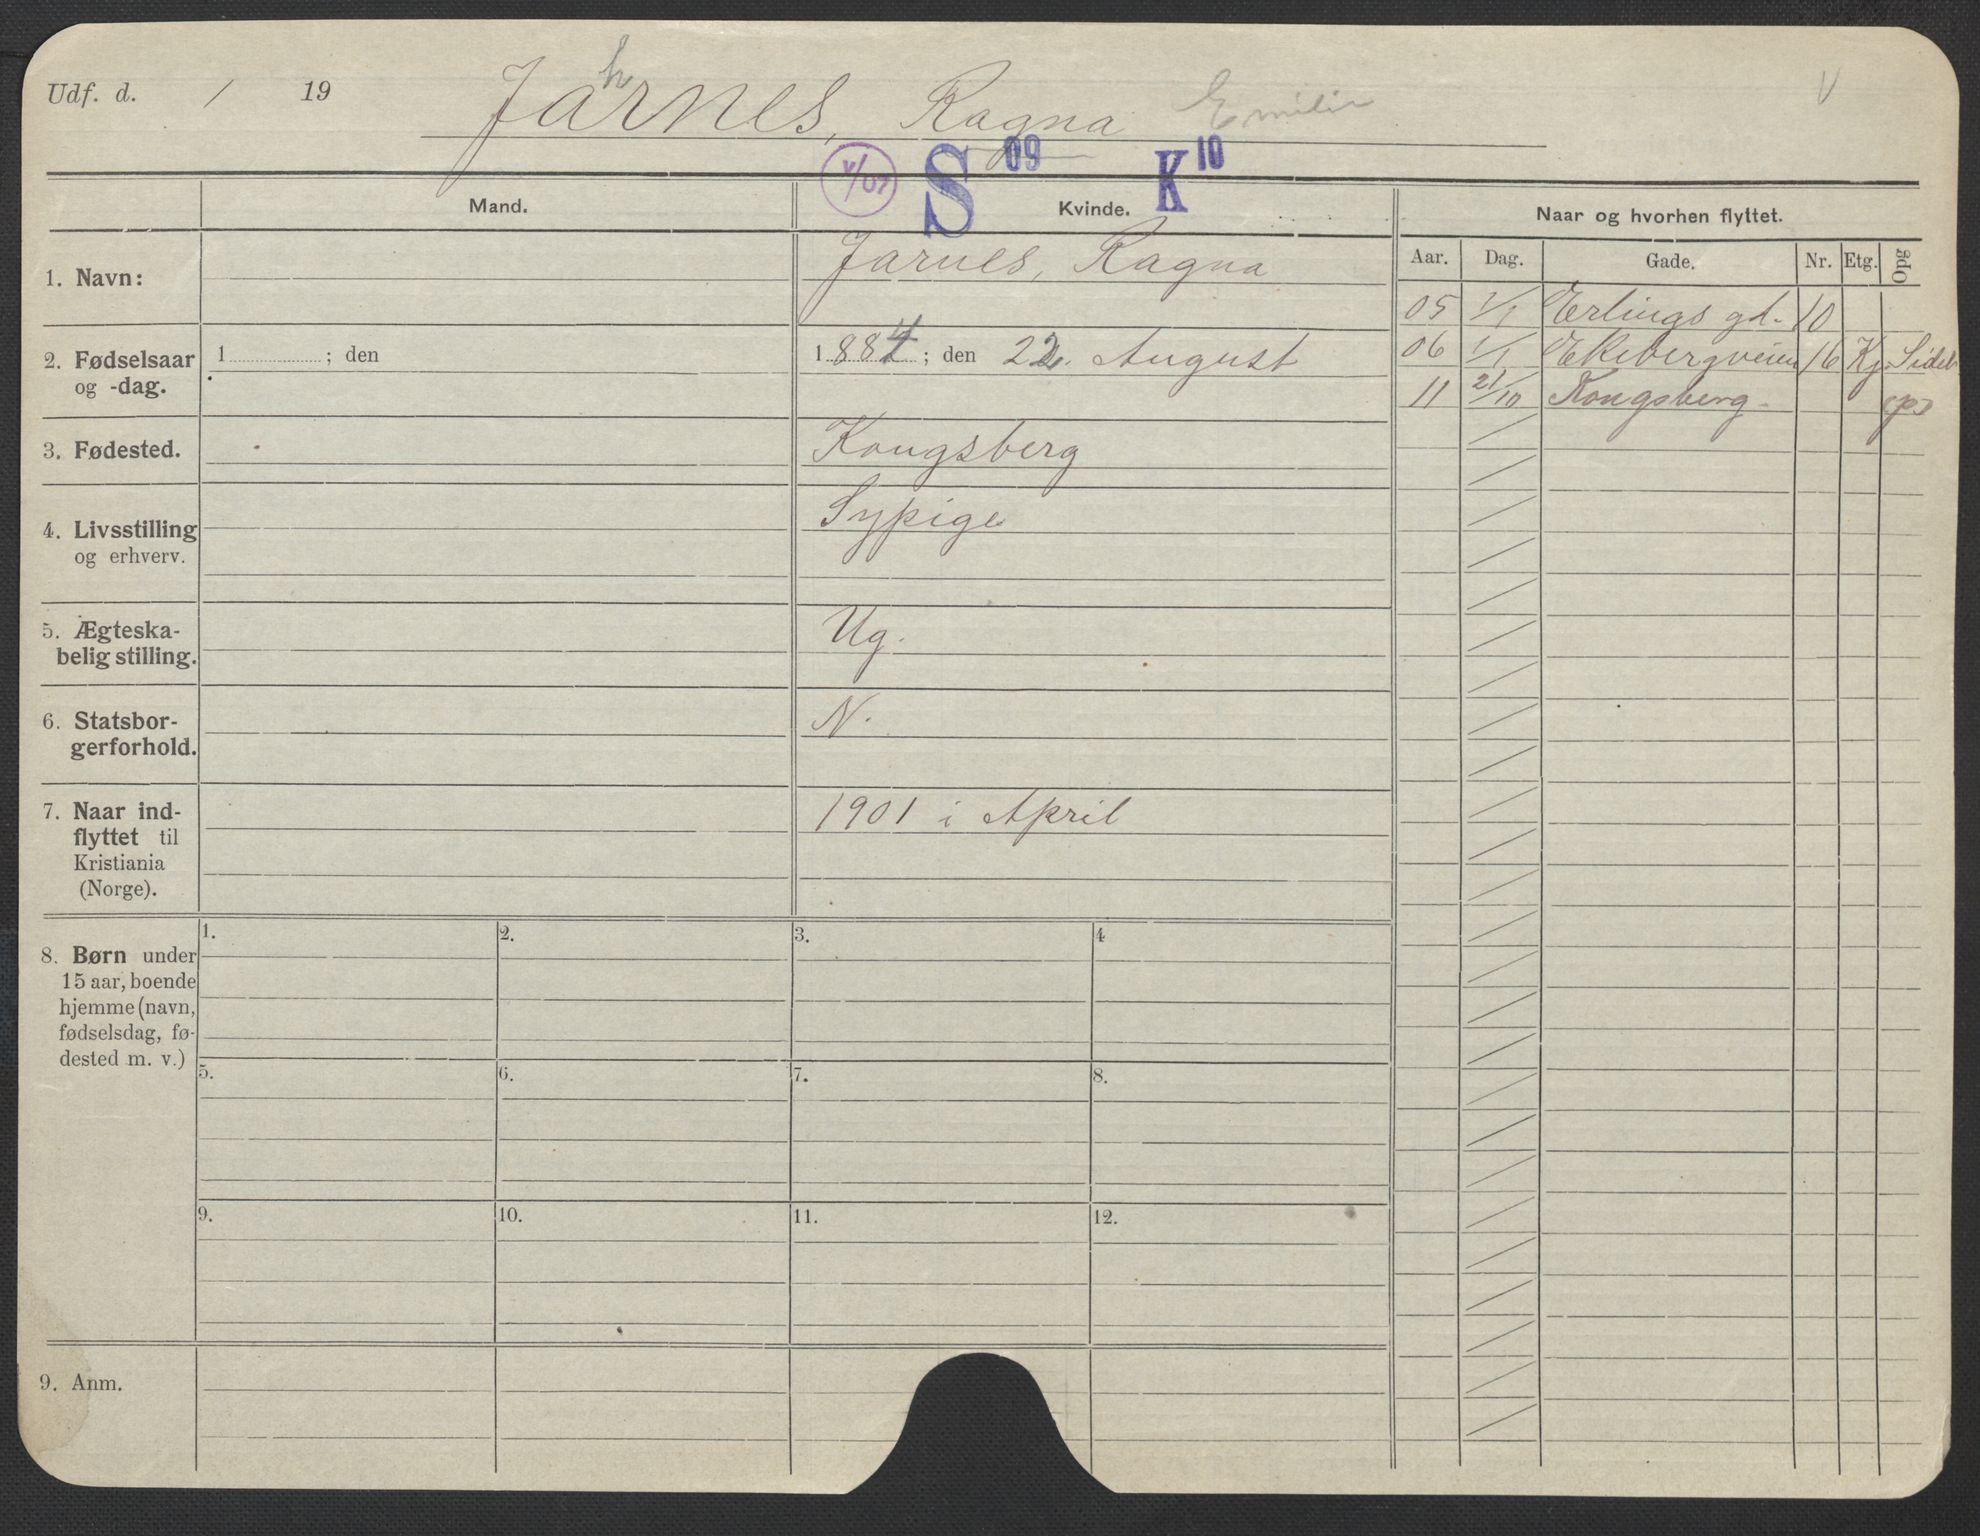 Udf. d. / 19 Jahrnes, Ragna Emilie V
V/07 S 09 K 10
Mand. Kvinde. Naar og hvorhen flyttet.
Aar. Dag. Gade. Nr. Etg. Opg
1. Navn: Jarnes, Ragna
05 1/1 Erlings gd. 10
2. Fødselsaar 1 ; den 1884; den 22. August
og -dag.
06 1/1 Ekebergveien 16 Kj. Sideb
11 21/10 Kongsberg
3. Fødested. Kongsberg
4. Livsstilling Sypige
og erhverv.
5. Ægteska-
belig stilling. Ug.
6. Statsbor- N.
gerforhold.
7. Naar ind- 1901 i April
flyttet til
Kristiania
(Norge).
1. 2. 3. 4
8. Børn under
15 aar, boende
hjemme (navn,
fødselsdag, fø-
dested m. v.)
5. 6. 7. 8.
9. 10. 11. 12.
9. Anm.